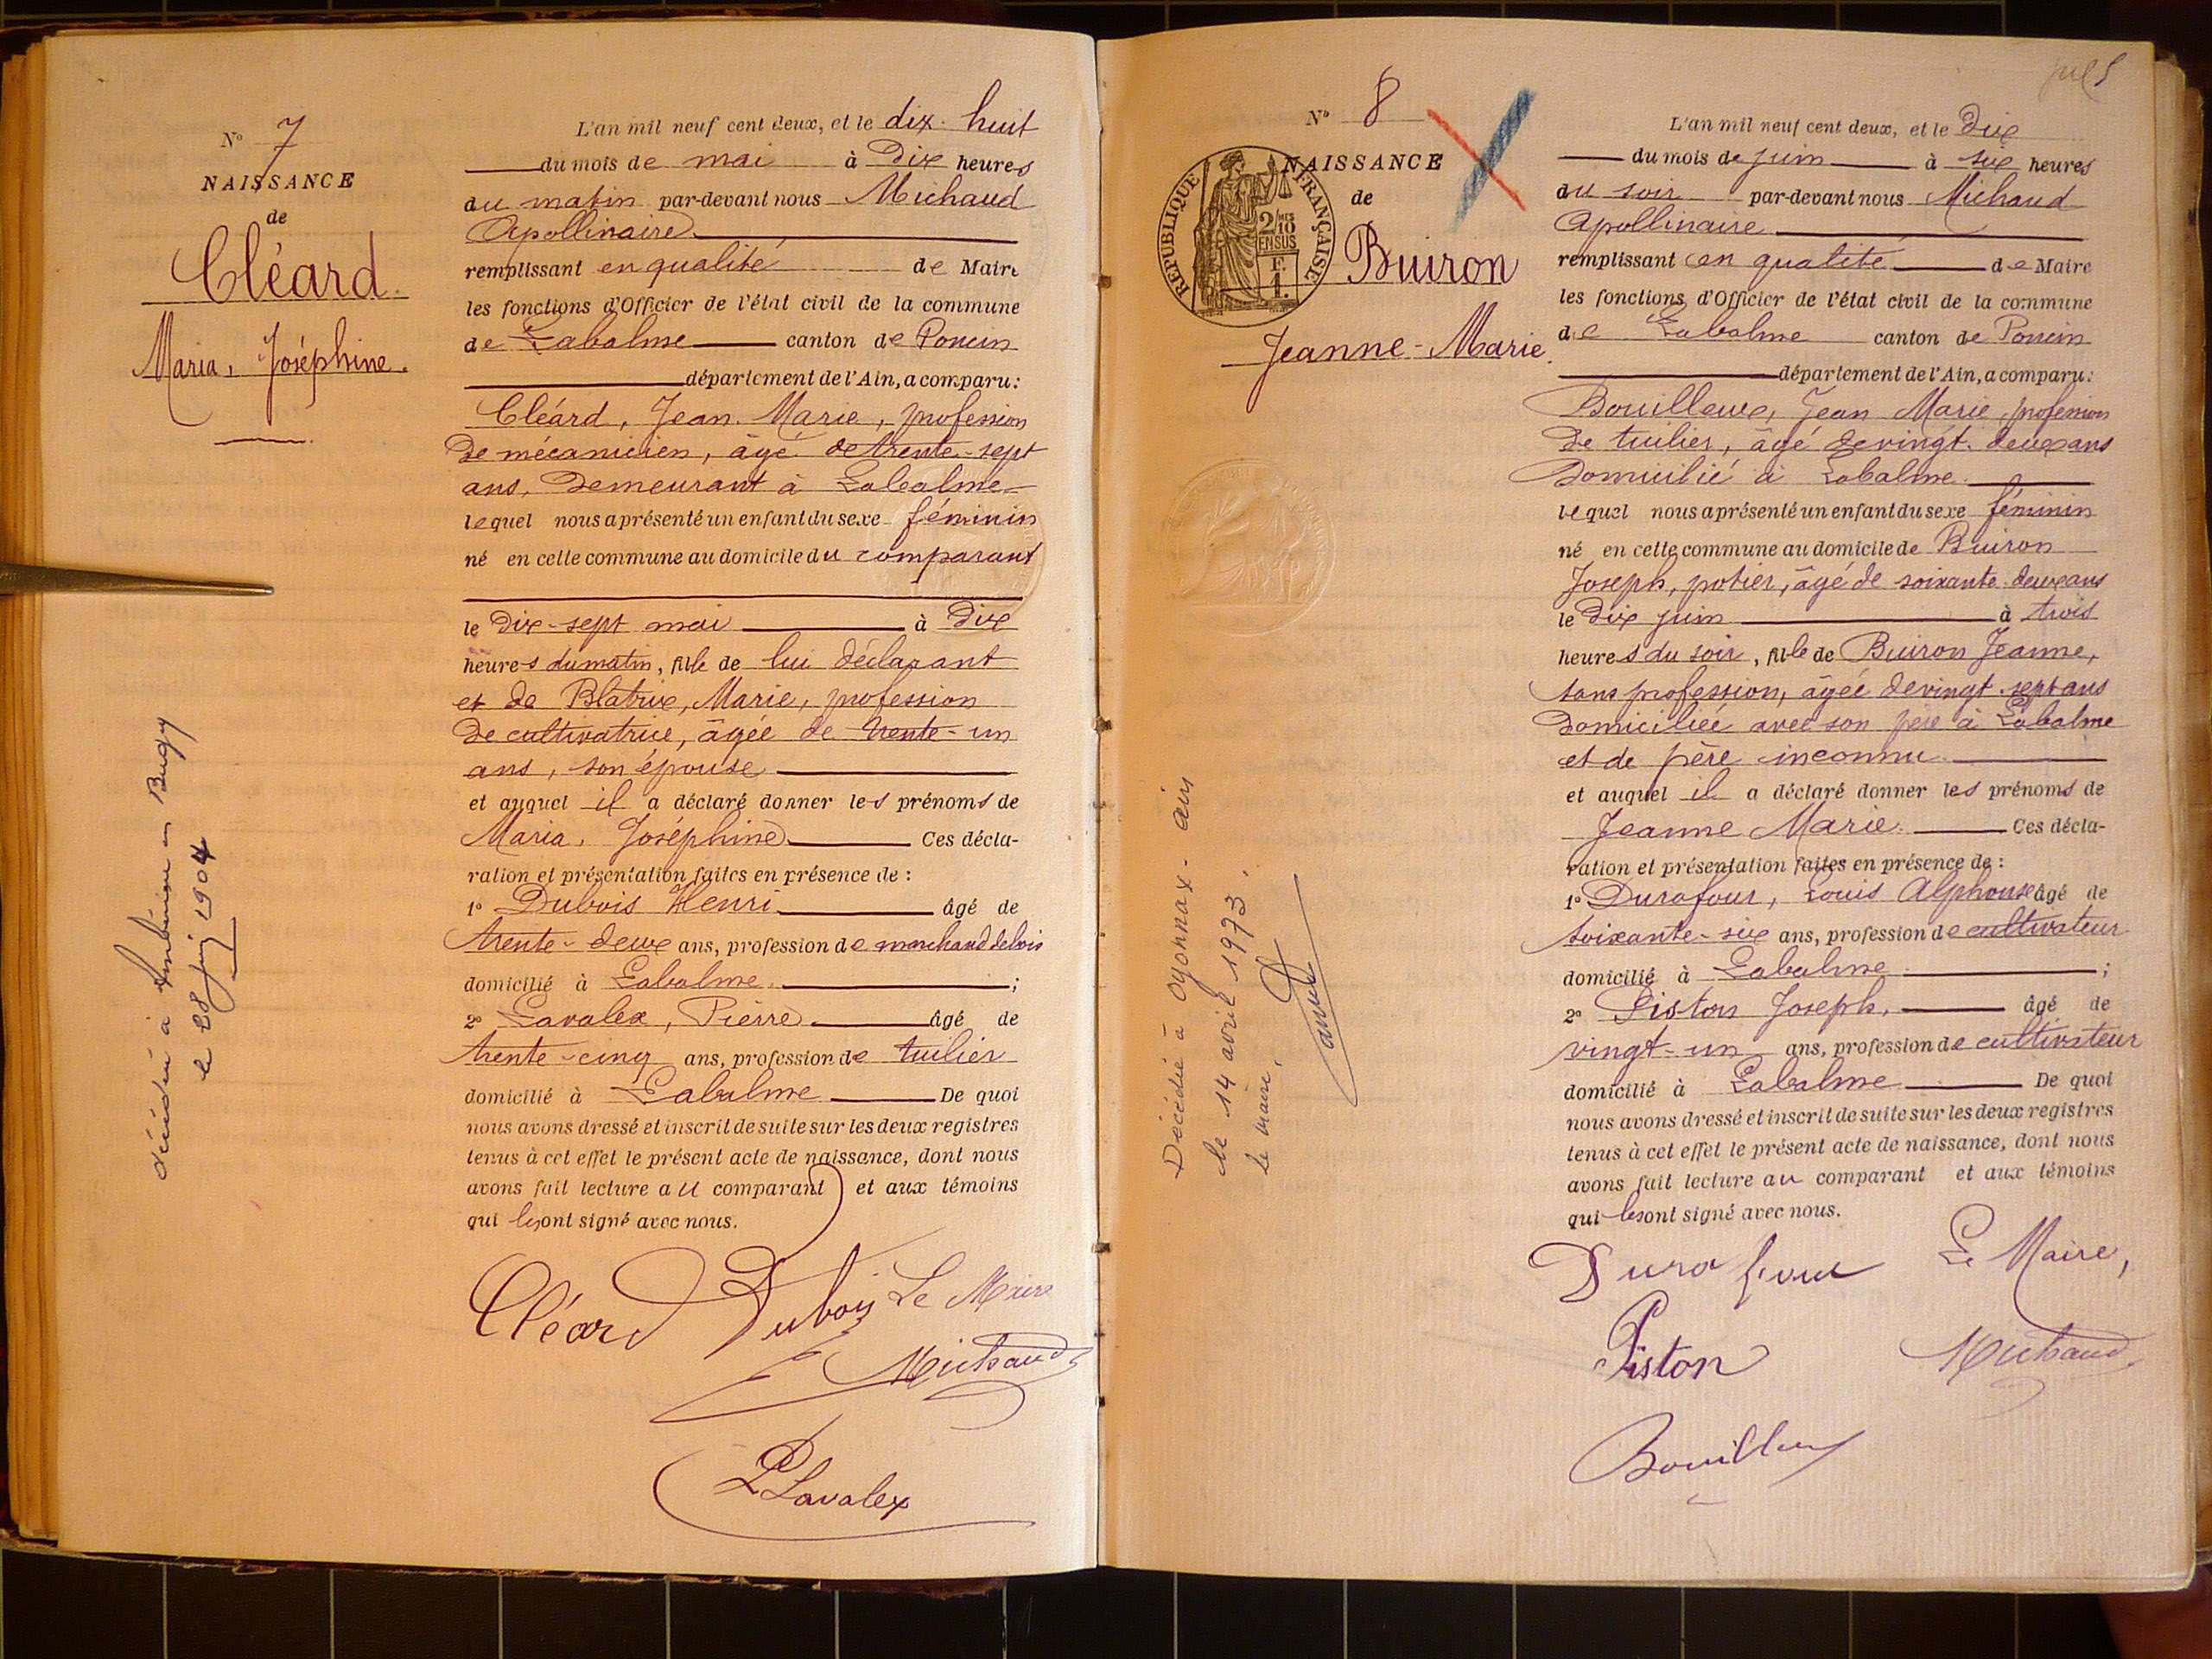 N° 7
NAISSANCE
de
Cléard
Maria, Joséphine.
décédée à Ambérieu en Bugey
le 28 juin 1904
L'an mil neuf cent deux, et le dix-huit
du mois de mai à Dix heures
du matin par-devant nous Michaud
Apollinaire
remplissant en qualité de Maire
les fonctions d'Officier de l'état civil de la commune
de Labalme canton de Poncin
département de l'Ain, a comparu:
Cléard, Jean Marie, profession
de mécanicien, âgé de trente-sept
ans, Demeurant à Labalme
lequel nous a présenté un enfant du sexe féminin
né en cette commune au domicile du comparant
le Dix-sept mai à Dix
heures du matin, fille de lui déclarant
et de Blatrix, Marie, profession
de cultivatrice, âgée de trente-un
ans, son épouse
et auquel il a déclaré donner les prénoms de
Maria, Joséphine Ces décla-
ration et présentation faites en présence de :
1° Dubois Henri âgé de
trente-deux ans, profession de marchand de bois
domicilié à Labalme ;
2° Lavalex, Pierre âgé de
trente-cinq ans, profession de tuilier
domicilié à Labalme De quoi
nous avons dressé et inscrit de suite sur les deux registres
tenus à cet effet le présent acte de naissance, dont nous
avons fait lecture au comparant et aux témoins
qui les ont signé avec nous.
Cléard Dubois Le Maire
Michaud
P Lavalex
N° 8
NAISSANCE
de
REPUBLIQUE FRANÇAISE
2/10 EN SUS
F. 1.
Buiron
Jeanne-Marie.
Décédée à Oyonnax - Ain
le 14 avril 1973.
Le Maire,
L'an mil neuf cent deux, et le Dix
du mois de juin à six heures
du soir par-devant nous Michaud
Apollinaire
remplissant en qualité de Maire
les fonctions d'Officier de l'état civil de la commune
de Labalme canton de Poncin
département de l'Ain, a comparu:
Bouilleux, Jean Marie, profession
de tuilier, âgé de vingt-deux ans
Domicilié à Labalme
lequel nous a présenté un enfant du sexe féminin
né en cette commune au domicile de Buiron
Joseph, potier, âgé de soixante-deux ans
le Dix juin à trois
heures du soir, fille de Buiron Jeanne,
sans profession, âgée de vingt-sept ans
Domiciliée avec son père à Labalme
et de père inconnu
et auquel il a déclaré donner les prénoms de
Jeanne Marie. Ces décla-
ration et présentation faites en présence de :
1° Durafour, Louis Alphonse âgé de
soixante-six ans, profession de cultivateur
domicilié à Labalme ;
2° Piston Joseph, âgé de
vingt-un ans, profession de cultivateur
domicilié à Labalme De quoi
nous avons dressé et inscrit de suite sur les deux registres
tenus à cet effet le présent acte de naissance, dont nous
avons fait lecture au comparant et aux témoins
qui les ont signé avec nous.
Durafour Le Maire,
Piston Michaud
Bouilleux